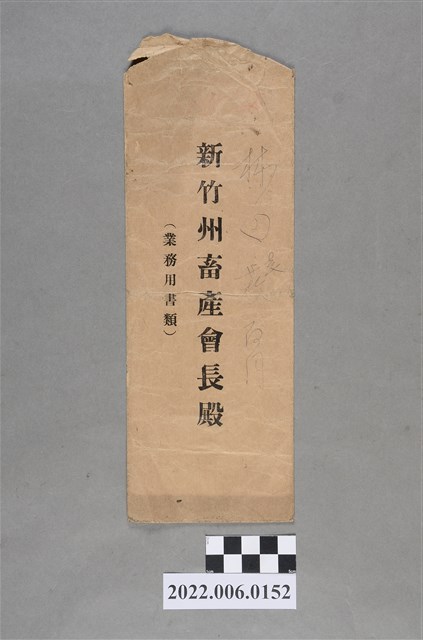 新竹州畜產會長殿
（業務用書類）
2022.006.0152